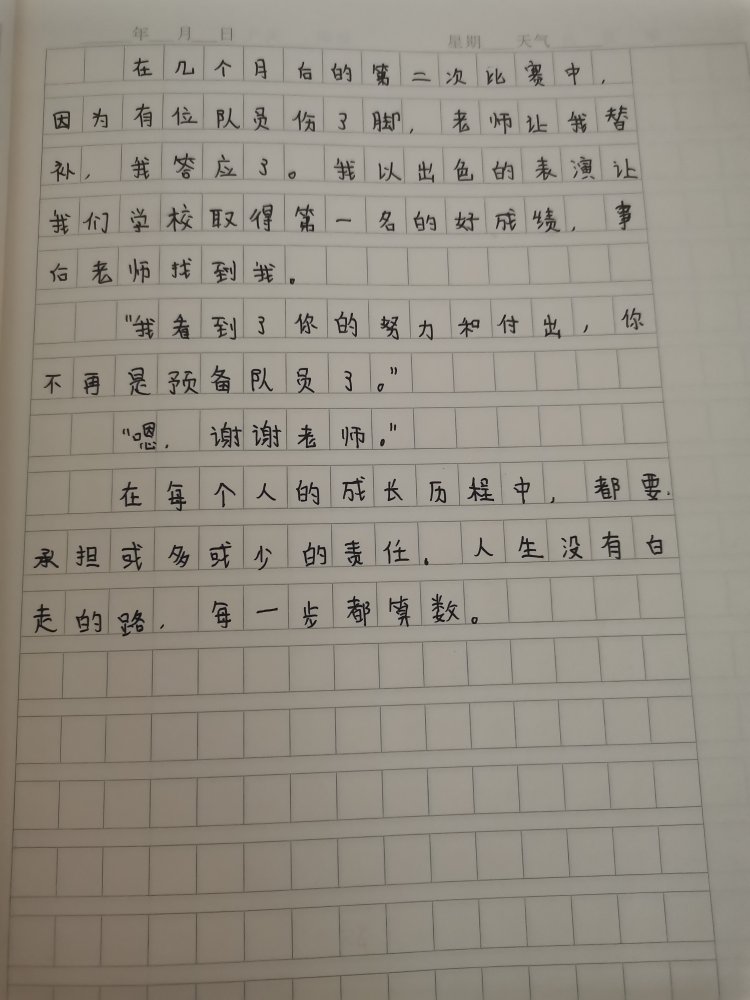 年 月 日 星期 天气
在几个月后的第二次比赛中，
因为有位队员伤了脚，老师让我替
补，我答应了。我以出色的表演让
我们学校取得第一名的好成绩，事
后老师找到我。
“我看到了你的努力和付出，你
不再是预备队员了。”
“嗯，谢谢老师。”
在每个人的成长历程中，都要
承担或多或少的责任。人生没有白
走的路，每一步都算数。